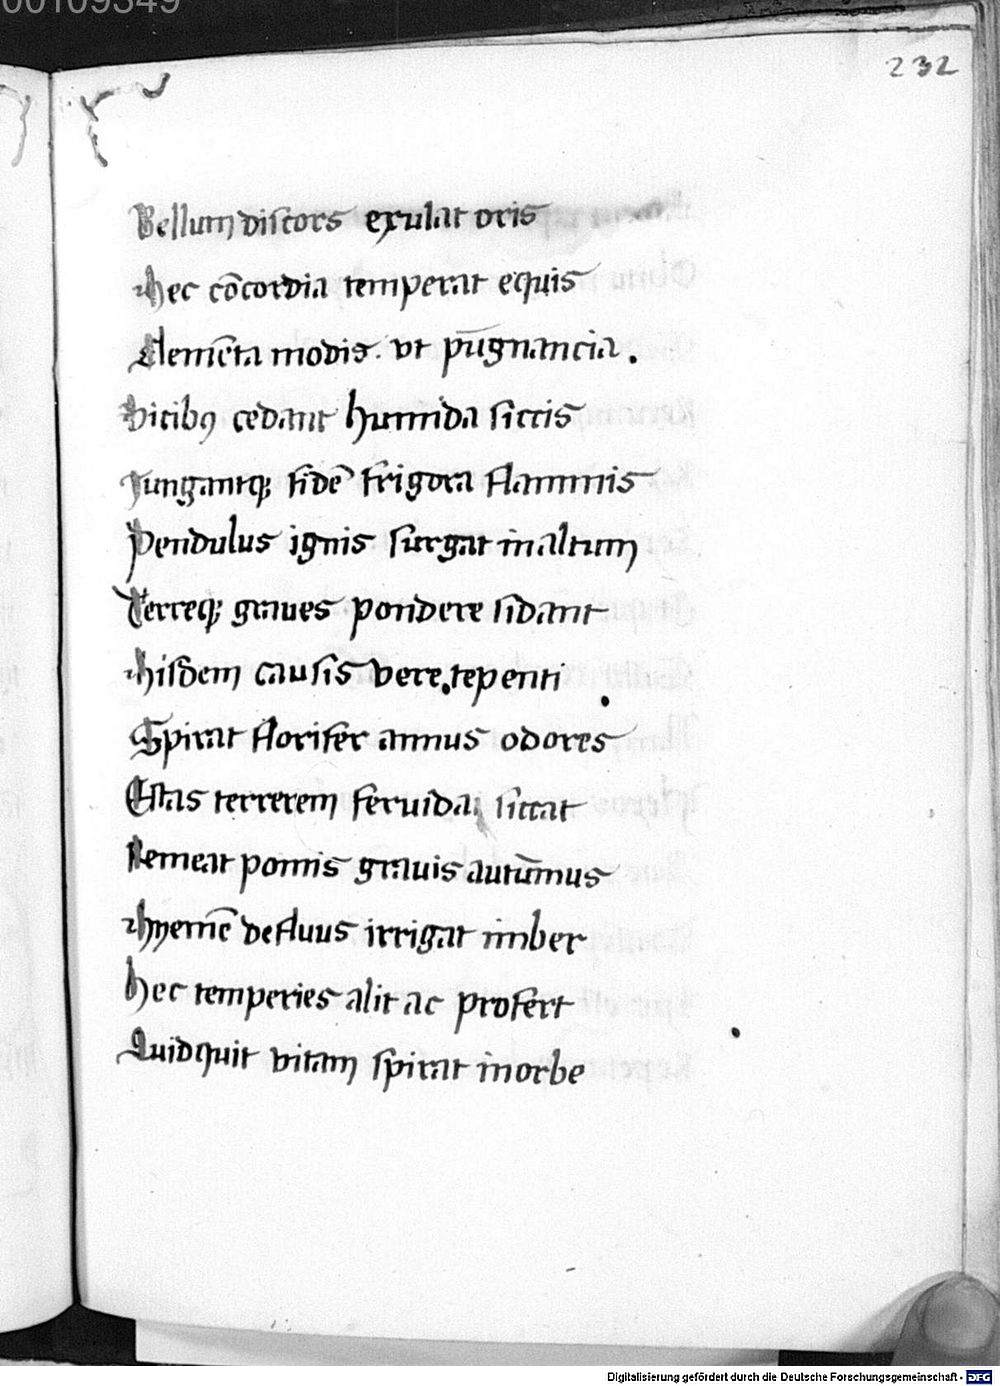 00109349
232
Bellum discors exulat oris
Hec co̅cordia temperat equis
Eleme̅ta modis. vt pu̅gnancia.
Vicibꝰ cedant humida siccis
Jungantqꝫ fide̅ frigora flammis
Pendulus ignis surgat in altum
Terreqꝫ graues pondere sidant
Hisdem causis vere tepenti
Spirat florifer annus odores
Estas terrerem feruida siccat
Remeat pomis grauis autu̅mus
Hyeme̅ defluus irrigat imber
Hec temperies alit ac profert
Quidquit vitam spirat in orbe
Digitalisierung gefördert durch die Deutsche Forschungsgemeinschaft - DFG